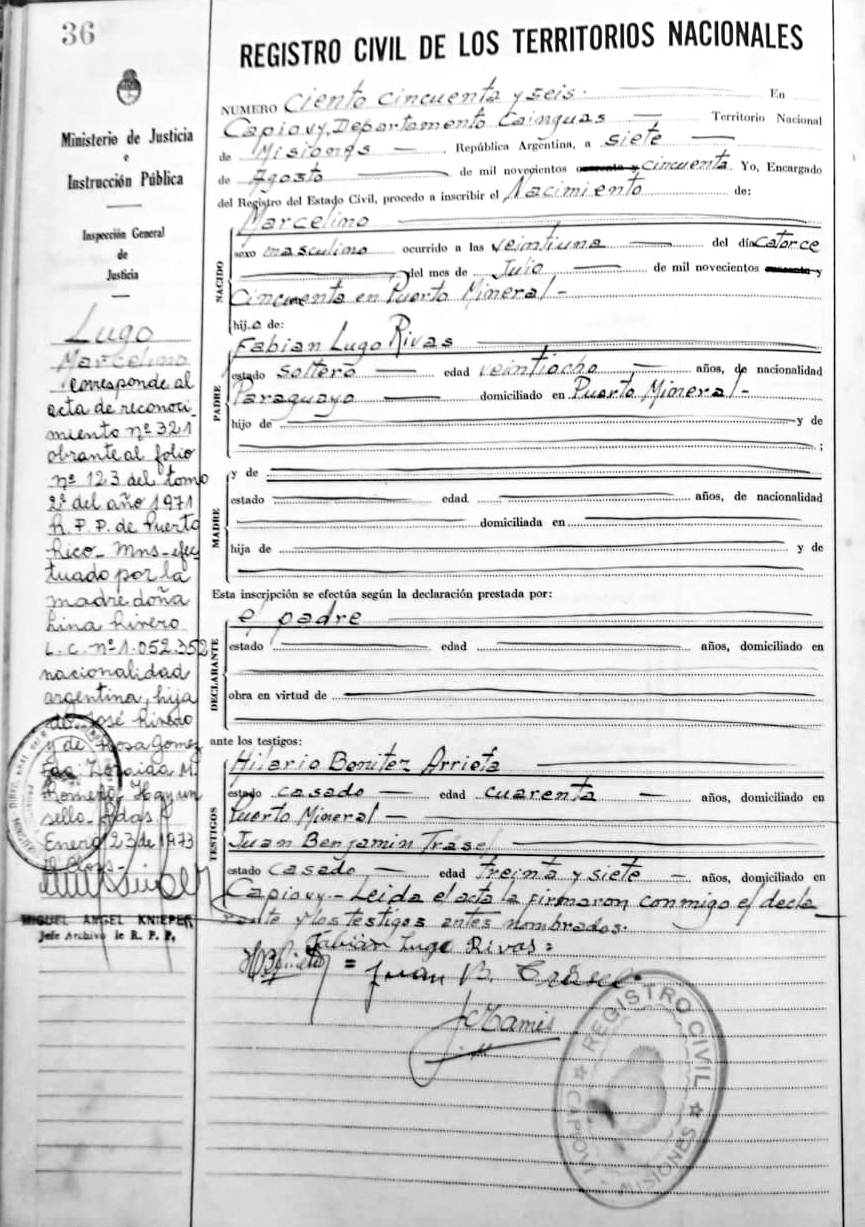 36
REGISTRO CIVIL DE LOS TERRITORIOS NACIONALES
Ministerio de Justicia
e
Instrucción Pública
Inspección General
de
Justicia
Lugo
Marcelino
corresponde al
acta de reconoci
miento nº 321
obrante al folio
nº 123 del tomo
2º del año 1971
R. P. P. de Puerto
Rico - Mns - efec
tuado por la
madre doña
Lina Rivero
L. C. nº 1.052.352
nacionalidad
argentina, hija
de José Rivero
y de Rosa Gomez
Fdo
Romero - Hay un
sello
Enero 23 de 1973
MIGUEL ANGEL KNIEPER
Jefe Archivo de R. P. P.
NUMERO Ciento cincuenta y seis. En
Capiovy, Departamento Cainguas — Territorio Nacional
de Misiones — República Argentina, a siete —
de Agosto — de mil novecientos cincuenta. Yo, Encargado
del Registro del Estado Civil, procedo a inscribir el Nacimiento de:
NACIDO
Marcelino
sexo masculino ocurrido a las veintiuna — del día Catorce
del mes de Julio — de mil novecientos
Cincuenta en Puerto Mineral -
hij.o de:
PADRE
Fabian Lugo Rivas
estado soltero — edad veintiocho — años, de nacionalidad
Paraguayo — domiciliado en Puerto Mineral -
hijo de — y de
;
MADRE
y de
estado — edad — años, de nacionalidad
domiciliada en
hija de — y de
Esta inscripción se efectúa según la declaración prestada por:
DECLARANTE
el padre
estado — edad — años, domiciliado en
obra en virtud de
ante los testigos:
TESTIGOS
Hilario Benitez Arrieta
estado casado — edad cuarenta — años, domiciliado en
Puerto Mineral -
Juan Benjamin Trasel
estado Casado, — edad Treinta y siete — años, domiciliado en
Capiovy - Leida el acta la firmaron conmigo el decla
rante y los testigos antes nombrados.
Fabian Lugo Rivas =
HBenitez = Juan B. Trasel
REGISTRO CIVIL
CAPIOVI
MISIONES